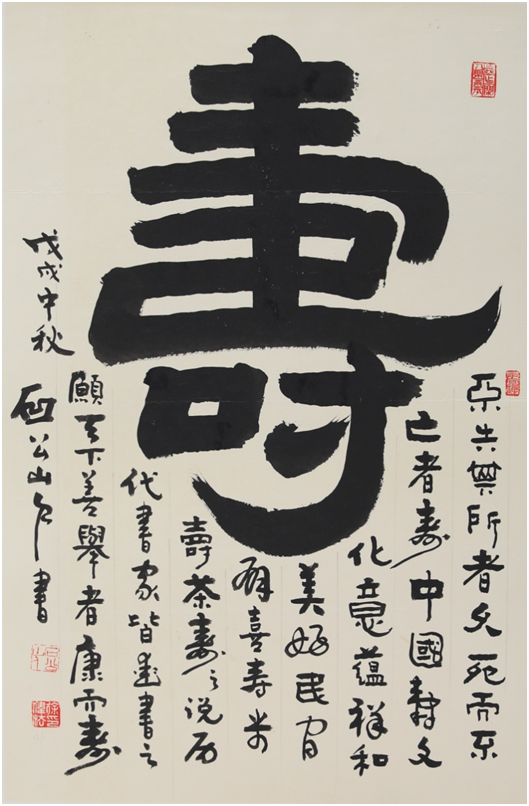 壽
不失其所者久死而不
亡者壽中國壽文
化意蘊祥和
美好民间
有喜寿米
壽茶壽之说历
代書家皆書之
願天下善舉者康而壽
戊戌中秋
公山人書